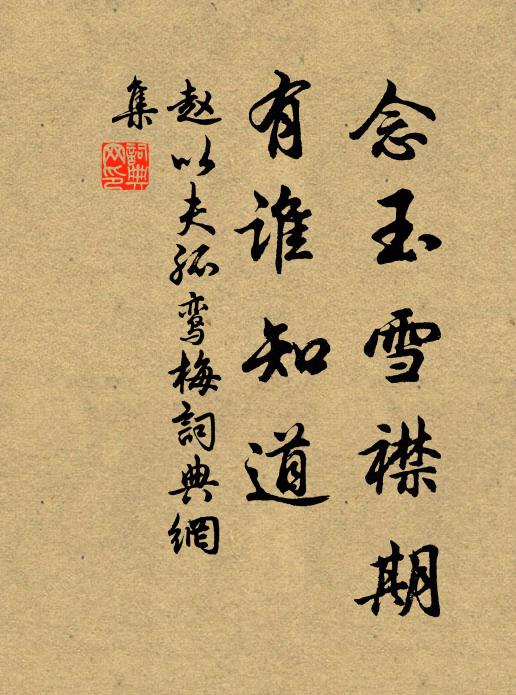 念玉雪襟期
有谁知道
赵以夫孤鸾梅詞典網
集
詞典网印